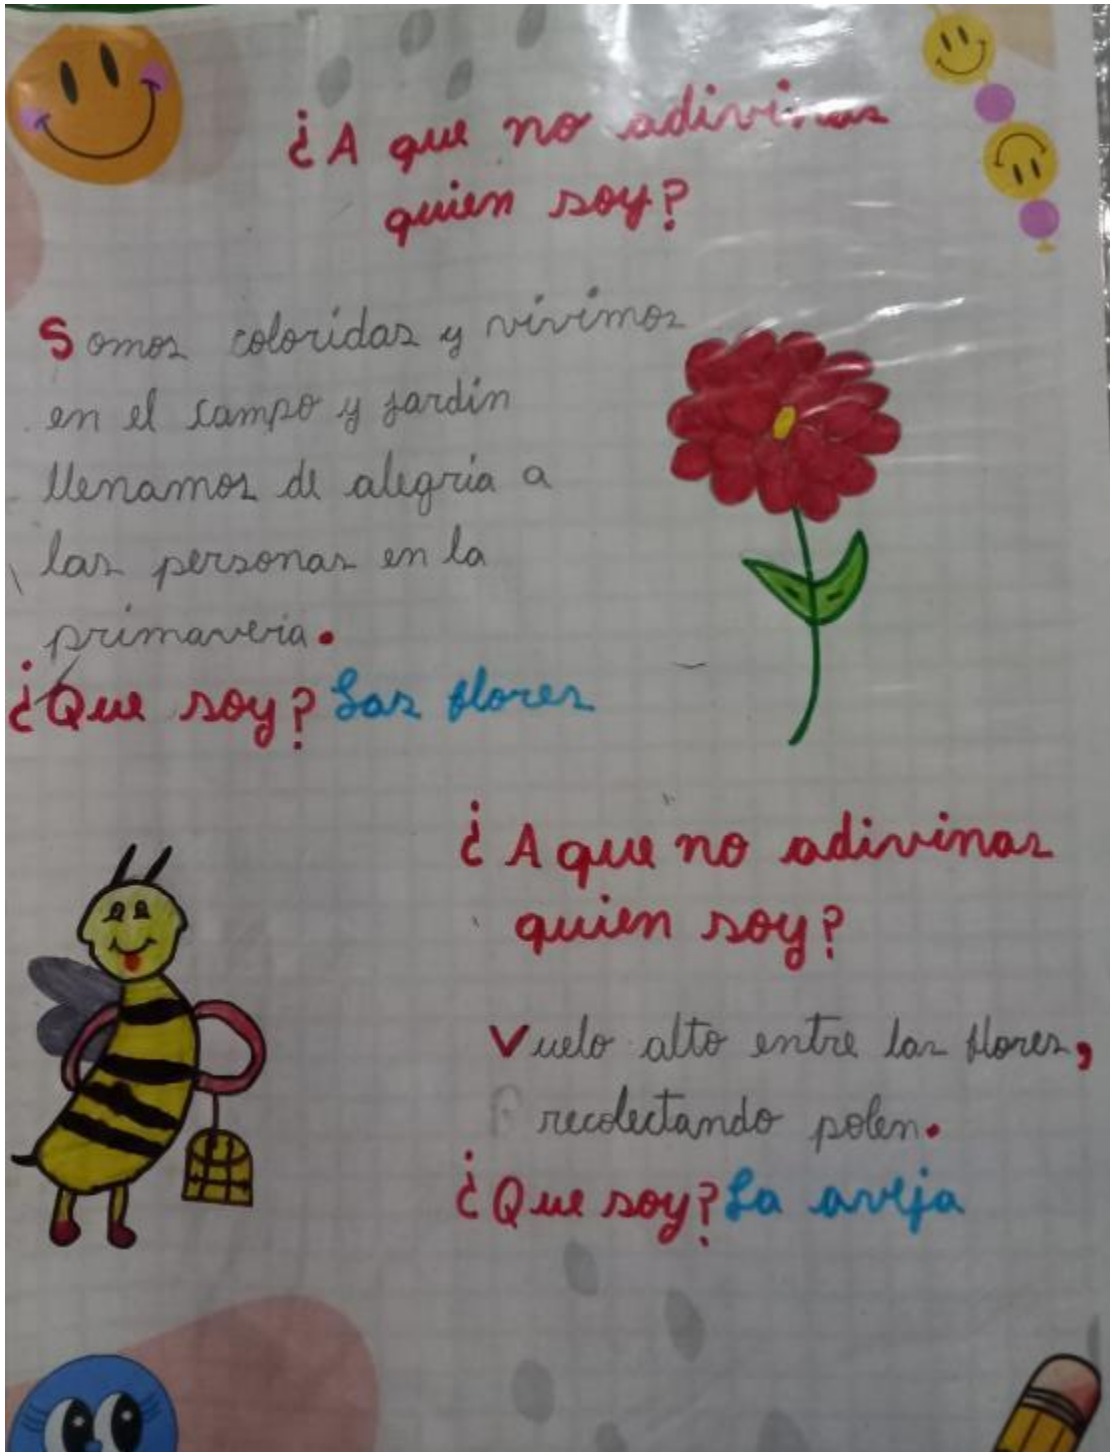 ¿A que no adivinas
quien soy?
Somos coloridas y vivimos
en el campo y jardín
llenamos de alegría a
las personas en la
primaveria.
¿Que soy? Las flores
¿A que no adivinas
quien soy?
Vuelo alto entre las flores,
recolectando polen.
¿Que soy? La aveja